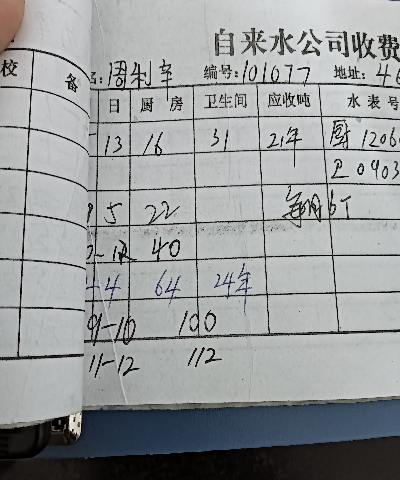 自来水公司收费
校 备 名:周利辛 编号:101077 地址:46
日 厨房 卫生间 应收吨 水表号
13 16 31 21年 厨 1206
卫 0903
5 22 每月6T
40
-4 64 24年
9-10 100
11-12 112